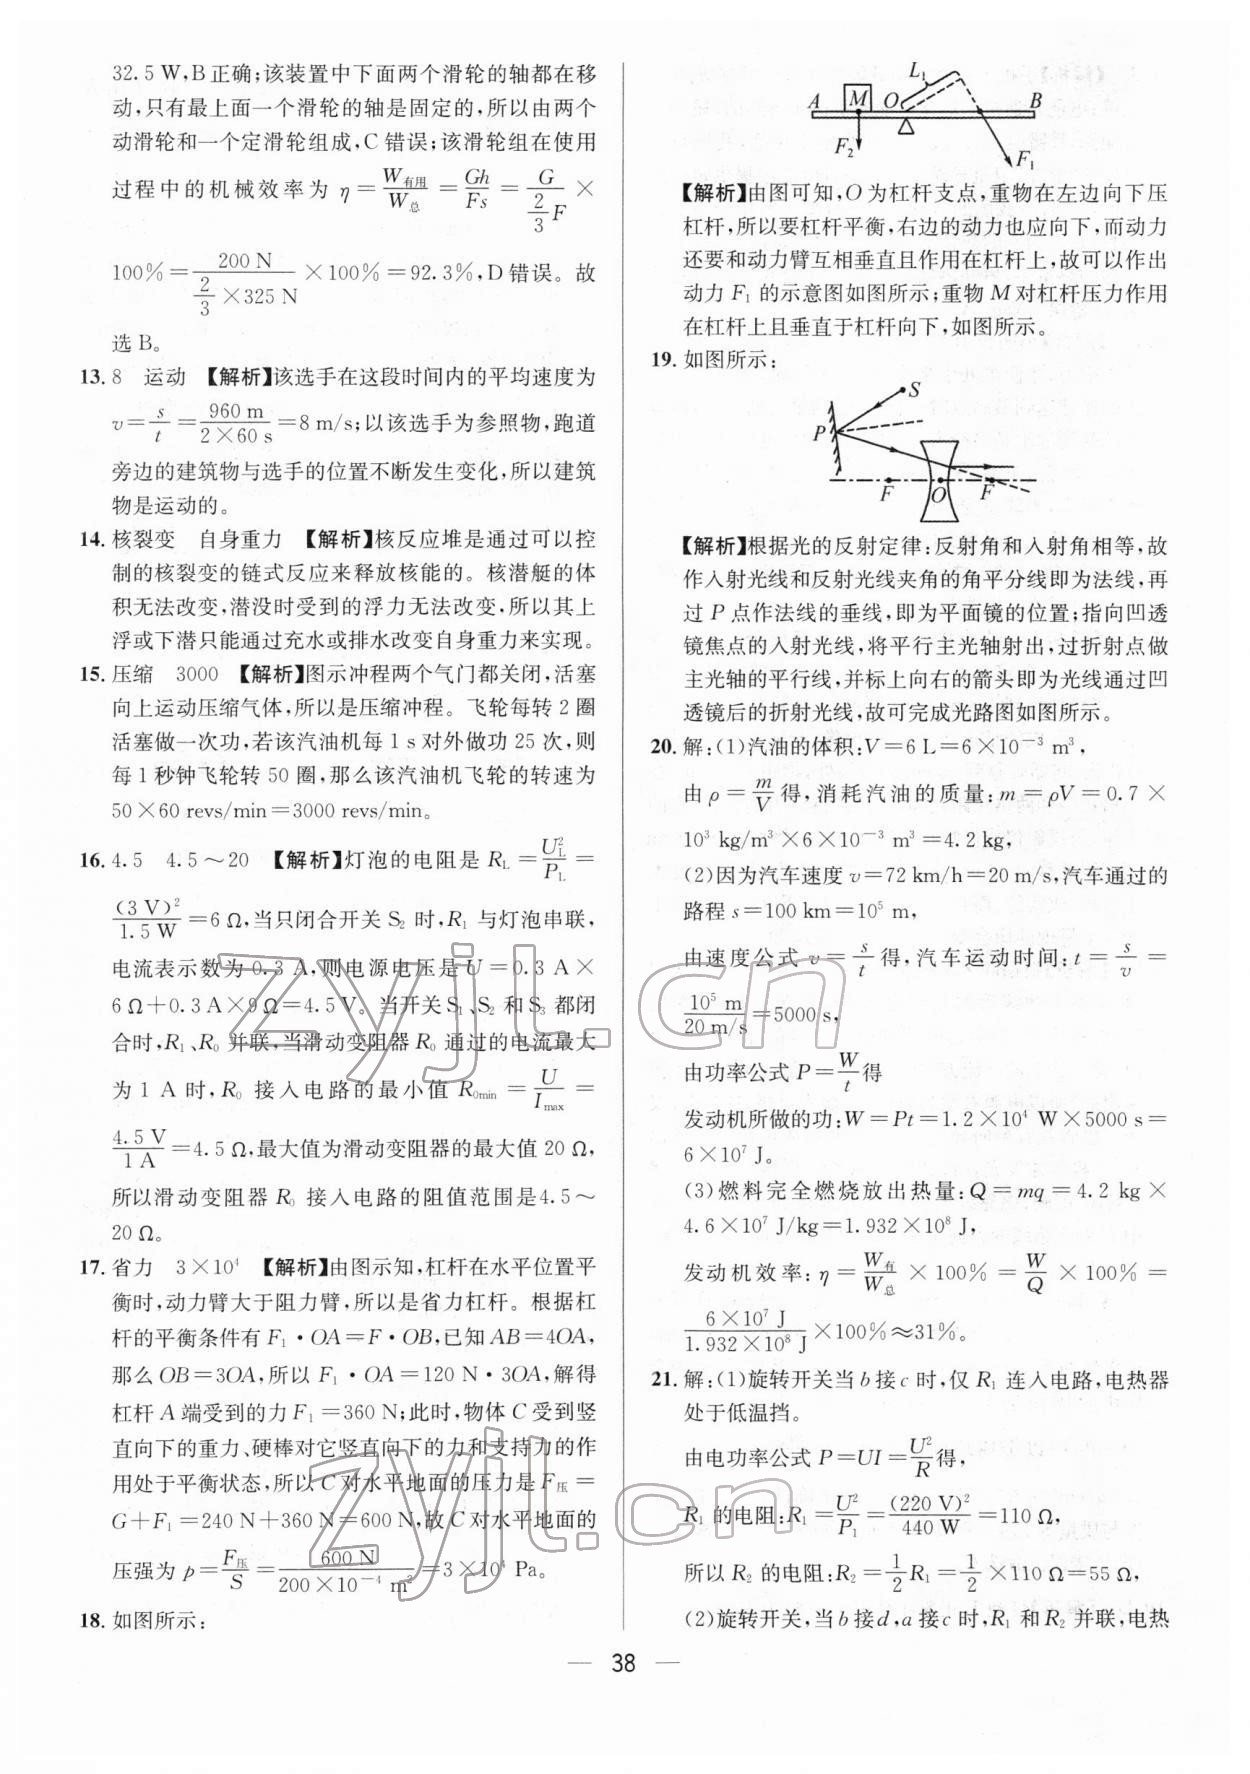 32.5 W,B正确;该装置中下面两个滑轮的轴都在移
动,只有最上面一个滑轮的轴是固定的,所以由两个
动滑轮和一个定滑轮组成,C错误;该滑轮组在使用
过程中的机械效率为 η=W有用/W总=Gh/Fs=G/(2/3 F)×
100%=200 N/(2/3×325 N)×100%=92.3%,D错误。故
选B。
13. 8 运动 【解析】该选手在这段时间内的平均速度为
v=s/t=960 m/(2×60 s)=8 m/s;以该选手为参照物,跑道
旁边的建筑物与选手的位置不断发生变化,所以建筑
物是运动的。
14. 核裂变 自身重力 【解析】核反应堆是通过可以控
制的核裂变的链式反应来释放核能的。核潜艇的体
积无法改变,潜没时受到的浮力无法改变,所以其上
浮或下潜只能通过充水或排水改变自身重力来实现。
15. 压缩 3000 【解析】图示冲程两个气门都关闭,活塞
向上运动压缩气体,所以是压缩冲程。飞轮每转2圈
活塞做一次功,若该汽油机每1 s对外做功25次,则
每1秒钟飞轮转50圈,那么该汽油机飞轮的转速为
50×60 revs/min=3000 revs/min。
16. 4.5 4.5~20 【解析】灯泡的电阻是 R_L=U_L²/P_L=
(3 V)²/1.5 W=6 Ω,当只闭合开关S₂时,R₁与灯泡串联,
电流表示数为0.3 A,则电源电压是U=0.3 A×
6Ω+0.3 A×9Ω=4.5 V。当开关S₁、S₂和S₃都闭
合时,R₁、R₀并联,当滑动变阻器R₀通过的电流最大
为1 A时,R₀接入电路的最小值R₀min=U/I max=
4.5 V/1 A=4.5 Ω,最大值为滑动变阻器的最大值20 Ω,
所以滑动变阻器R₀接入电路的阻值范围是4.5~
20 Ω。
17. 省力 3×10⁴ 【解析】由图示知,杠杆在水平位置平
衡时,动力臂大于阻力臂,所以是省力杠杆。根据杠
杆的平衡条件有F₁·OA=F·OB,已知AB=4OA,
那么OB=3OA,所以F₁·OA=120 N·3OA,解得
杠杆A端受到的力F₁=360 N;此时,物体C受到竖
直向下的重力、硬棒对它竖直向下的力和支持力的作
用处于平衡状态,所以C对水平地面的压力是F压=
G+F₁=240 N+360 N=600 N,故C对水平地面的
压强为p=F压/S=600 N/(200×10⁻⁴ m²)=3×10⁴ Pa。
18. 如图所示:
L₁
A M O B
F₂ F₁
【解析】由图可知,O为杠杆支点,重物在左边向下压
杠杆,所以要杠杆平衡,右边的动力也应向下,而动力
还要和动力臂互相垂直且作用在杠杆上,故可以作出
动力F₁的示意图如图所示;重物M对杠杆压力作用
在杠杆上且垂直于杠杆向下,如图所示。
19. 如图所示:
S
P
F O F
【解析】根据光的反射定律:反射角和入射角相等,故
作入射光线和反射光线夹角的角平分线即为法线,再
过P点作法线的垂线,即为平面镜的位置;指向凹透
镜焦点的入射光线,将平行主光轴射出,过折射点做
主光轴的平行线,并标上向右的箭头即为光线通过凹
透镜后的折射光线,故可完成光路图如图所示。
20. 解:(1)汽油的体积:V=6 L=6×10⁻³ m³,
由ρ=m/V得,消耗汽油的质量:m=ρV=0.7×
10³ kg/m³×6×10⁻³ m³=4.2 kg,
(2)因为汽车速度v=72 km/h=20 m/s,汽车通过的
路程s=100 km=10⁵ m,
由速度公式v=s/t得,汽车运动时间:t=s/v=
10⁵ m/20 m/s=5000 s,
由功率公式P=W/t得
发动机所做的功:W=Pt=1.2×10⁴ W×5000 s=
6×10⁷ J。
(3)燃料完全燃烧放出热量:Q=mq=4.2 kg×
4.6×10⁷ J/kg=1.932×10⁸ J,
发动机效率:η=W有/W总×100%=W/Q×100%=
6×10⁷ J/1.932×10⁸ J×100%≈31%。
21. 解:(1)旋转开关当b接c时,仅R₁连入电路,电热器
处于低温挡。
由电功率公式P=UI=U²/R得,
R₁的电阻:R₁=U²/P₁=(220 V)²/440 W=110 Ω,
所以R₂的电阻:R₂=1/2R₁=1/2×110 Ω=55 Ω,
(2)旋转开关,当b接d,a接c时,R₁和R₂并联,电热
— 38 —
zyjl.cn
zyjl.cn